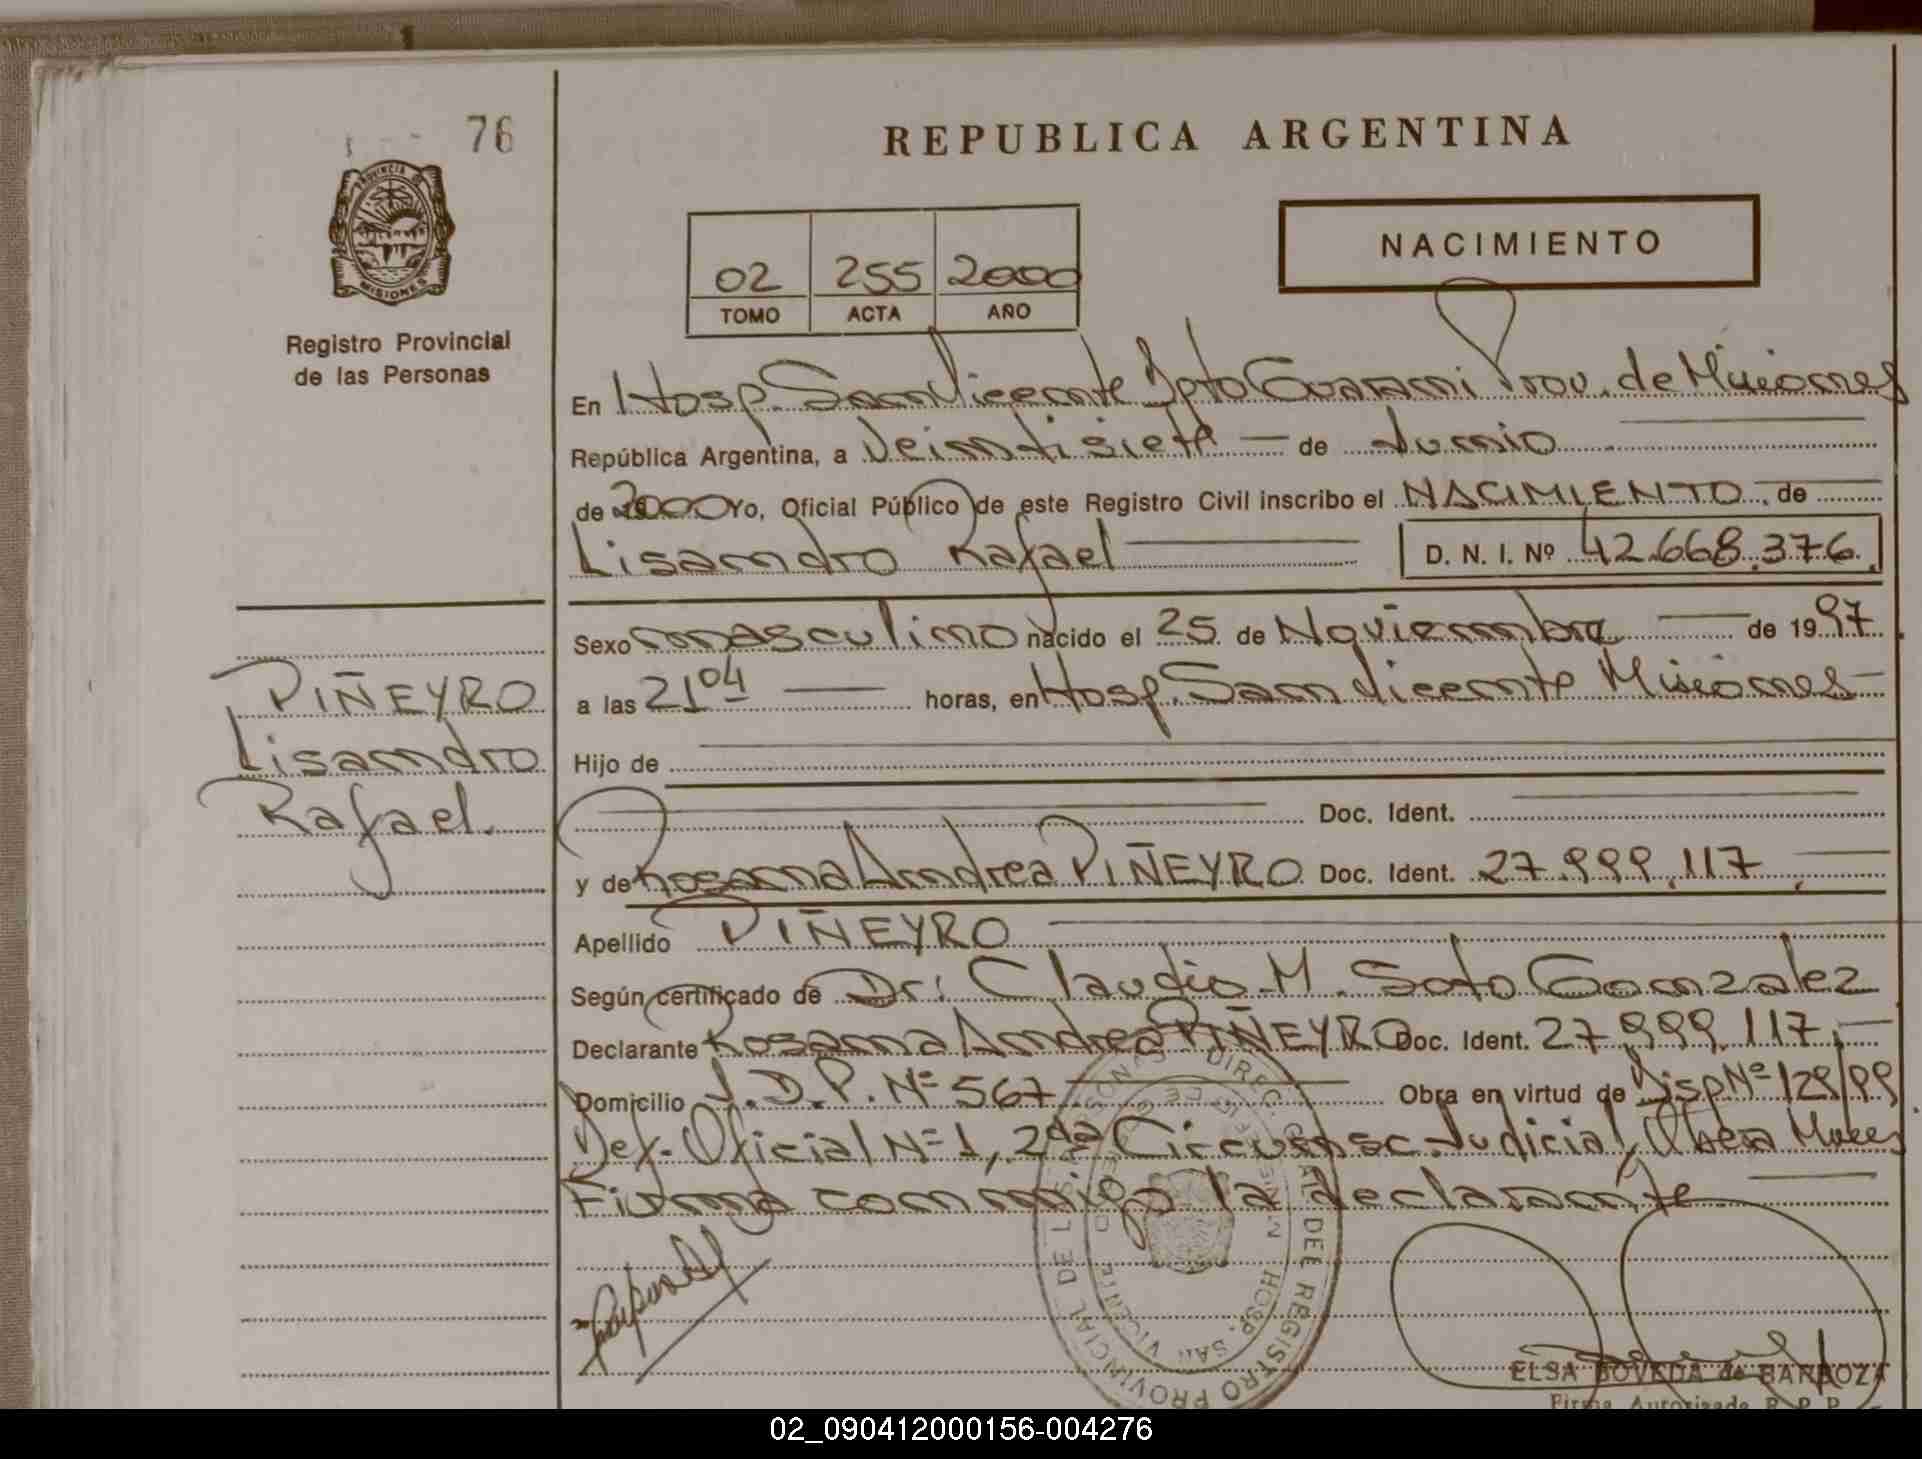 76
PROVINCIA DE
MISIONES
Registro Provincial
de las Personas
REPUBLICA ARGENTINA
02 255 2000
TOMO ACTA AÑO
NACIMIENTO
En Hosp. San Vicente Dpto Guarani Prov. de Misiones
República Argentina, a Veintisiete — de Junio
de 2000 Yo, Oficial Público de este Registro Civil inscribo el NACIMIENTO de
Lisandro Rafael D. N. I. Nº 42.668.376.
Sexo masculino nacido el 25 de Noviembre de 1997
a las 21 04 horas, en Hosp. San Vicente Misiones
Hijo de
Doc. Ident.
y de Rosana Andrea PIÑEYRO Doc. Ident. 27.999.117
Apellido PIÑEYRO
Según certificado de Dr: Claudio M. Soto Gonzalez
Declarante Rosana Andrea PIÑEYRO Doc. Ident. 27.999.117
Domicilio J.D.P. Nº 567 Obra en virtud de Disp Nº 129/99
Def. Oficial Nº 1, 2da Circunsc. Judicial, Obera
Firma conmigo la declarante
PIÑEYRO
Lisandro
Rafael.
HOSP. SAN VICENTE
DEL REGISTRO PROVINCIAL DE LAS
ELSA BOVEDA de BARBOZA
Firma Autorizada R.P.P.
02_090412000156-004276